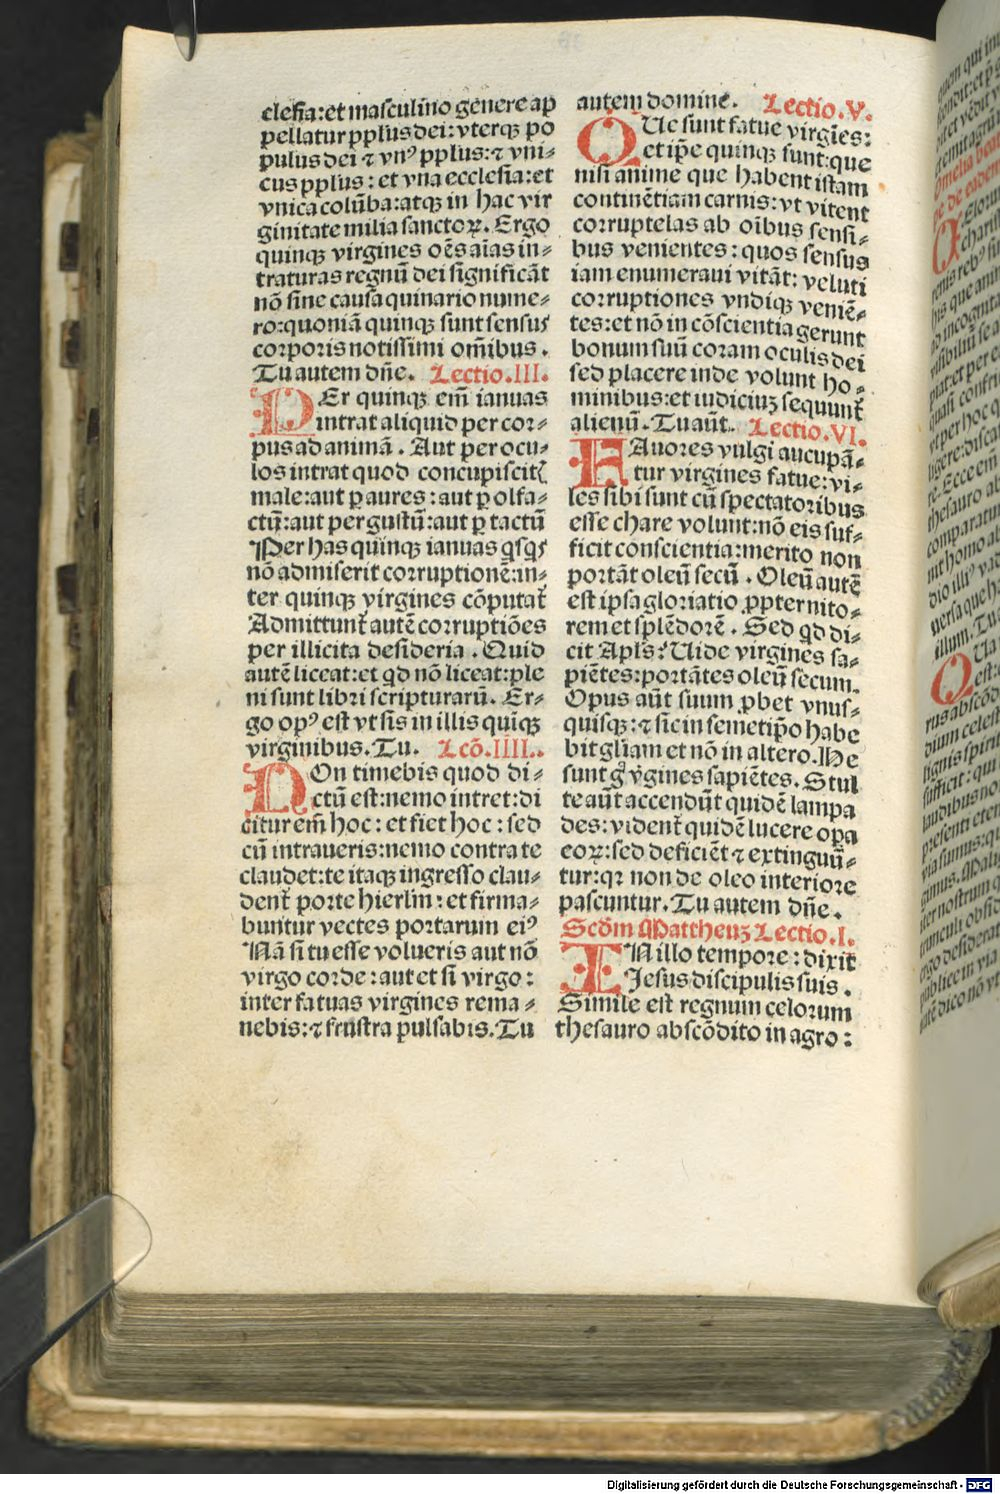 clesia:et masculino genere ap
pellatur pplus dei:vterqꝫ po
pulus dei ⁊ vnꝰ pplus:⁊ vni-
cus pplus: et vna ecclesia:et
vnica colũba:atqꝫ in hac vir
ginitate milia sanctoꝝ. Ergo
quinqꝫ virgines oẽs aĩas in-
traturas regnũ dei significãt
nõ sine causa quinario nume-
ro:quoniã quinqꝫ sunt sensus
corporis notissimi om̃ibus.
Tu autem dñe. Lectio.III.
PEr quinqꝫ em̃ ianuas
intrat aliquid per cor-
pus ad animã. Aut per ocu-
los intrat quod concupiscit̃
male:aut ꝑ aures: aut ꝑ olfa-
ctũ:aut per gustũ:aut ꝑ tactũ
Per has quinqꝫ ianuas q̃sq̃s
nõ admiserit corruptionẽ:in-
ter quinqꝫ virgines cõputat̃
Admittunt̃ autẽ corruptiões
per illicita desideria. Quid
autẽ liceat:et qd nõ liceat:ple
ni sunt libri scripturarũ. Er-
go opꝰ est vt sis in illis quĩqꝫ
virginibus. Tu. Lcõ.IIII.
NOn timebis quod di-
ctũ est:nemo intret:di
citur em̃ hoc: et fiet hoc: sed
cũ intraueris:nemo contra te
claudet:te itaqꝫ ingresso clau-
dent̃ porte hierlm̃: et firma-
buntur vectes portarum eiꝰ
Nã si tu esse volueris aut nõ
virgo corde: aut et si virgo:
inter fatuas virgines rema-
nebis:⁊ frustra pulsabis. Tu
autem domine. Lectio.V.
QUe sunt fatue virgĩes:
et ip̃e quinqꝫ sunt:que
nisi anime que habent istam
continẽtiam carnis:vt vitent
corruptelas ab oĩbus sensi-
bus venientes: quos sensus
iam enumeraui vitãt: veluti
corruptiones vndiqꝫ veniẽ-
tes:et nõ in cõscientia gerunt
bonum suũ coram oculis dei
sed placere inde volunt ho-
minibus:et iudiciuꝫ sequunt̃
alienũ. Tu aũt. Lectio.VI.
FAuores vulgi aucupã-
tur virgines fatue:vi-
les sibi sunt cũ spectatoribus
esse chare volunt:nõ eis suf-
ficit conscientia:merito non
portãt oleũ secũ. Oleũ autẽ
est ipsa gloriatio ꝓpter nito-
rem et splẽdorẽ. Sed qd di-
cit Apl̃s? Uide virgines sa-
piẽtes:portãtes oleũ secum.
Opus aũt suum ꝓbet vnus-
quisqꝫ: ⁊ sic in semetip̃o habe
bit gl̃iam et nõ in altero. He
sunt g̃ v̾gines sapiẽtes. Stul
te aũt accendũt quidẽ lampa
des: vident̃ quidẽ lucere opa
eoꝝ:sed deficiẽt ⁊ extinguũ-
tur:qꝛ non de oleo interiore
pascuntur. Tu autem dñe.
Scdm̃ Mattheuꝫ Lectio.I.
IN illo tempore: dixit
Jesus discipulis suis.
Simile est regnum celorum
thesauro abscõdito in agro:
Digitalisierung gefördert durch die Deutsche Forschungsgemeinschaft - DFG